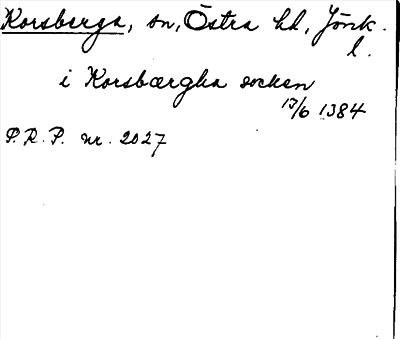 Korsberga, sn, Östra hd, Jönk.
l.
i Korsbærgha socken
13/6 1384
P.R.P. nr. 2027